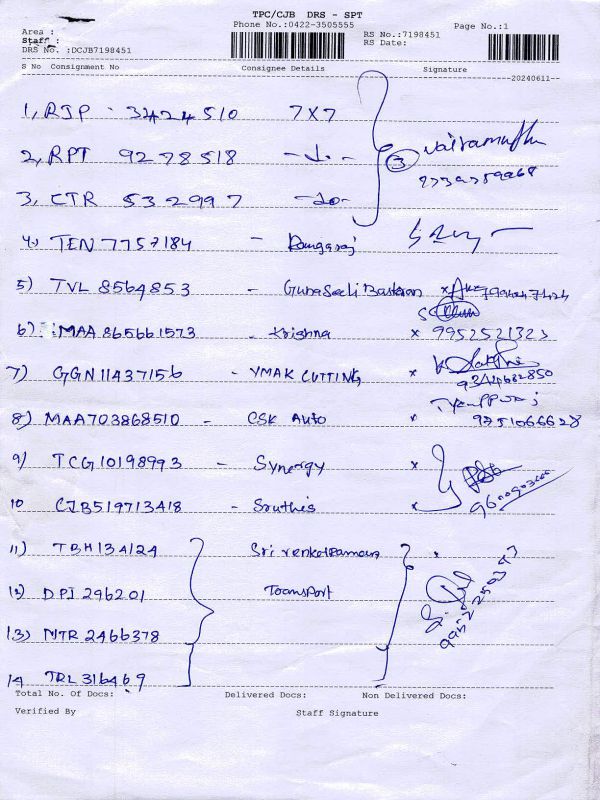 TPC/CJB DRS - SPT
Phone No.:0422-3505555 Page No.:1
Area :
Staff :
RS No.:7198451
DRS No. :DCJB7198451 RS Date:
S No Consignment No Consignee Details Signature
20240611
1, RJP - 3424510 7x7
2, RPT 9278518 -do- 3
3, CTR 532997 -do-
4.) TEN 7757184 - Rangaraj
5) TVL 8564853 - Gunaseeli Baskaran x
6) MAA 865661573 - Krishna x 9952521323
7) GGN11437156 - YMAK CUTTING x 9344682850
8) MAA703868510 - CSK Auto x 9751066628
9) TCG10198993 - Synergy x
10 CJB519713418 - Sruthis x
11) TBH134124 Sri venkatramana x
12) DPI 296201 Transport
13) MTR 2466378
14 TRL 316469
Total No. Of Docs: Delivered Docs: Non Delivered Docs:
Verified By Staff Signature